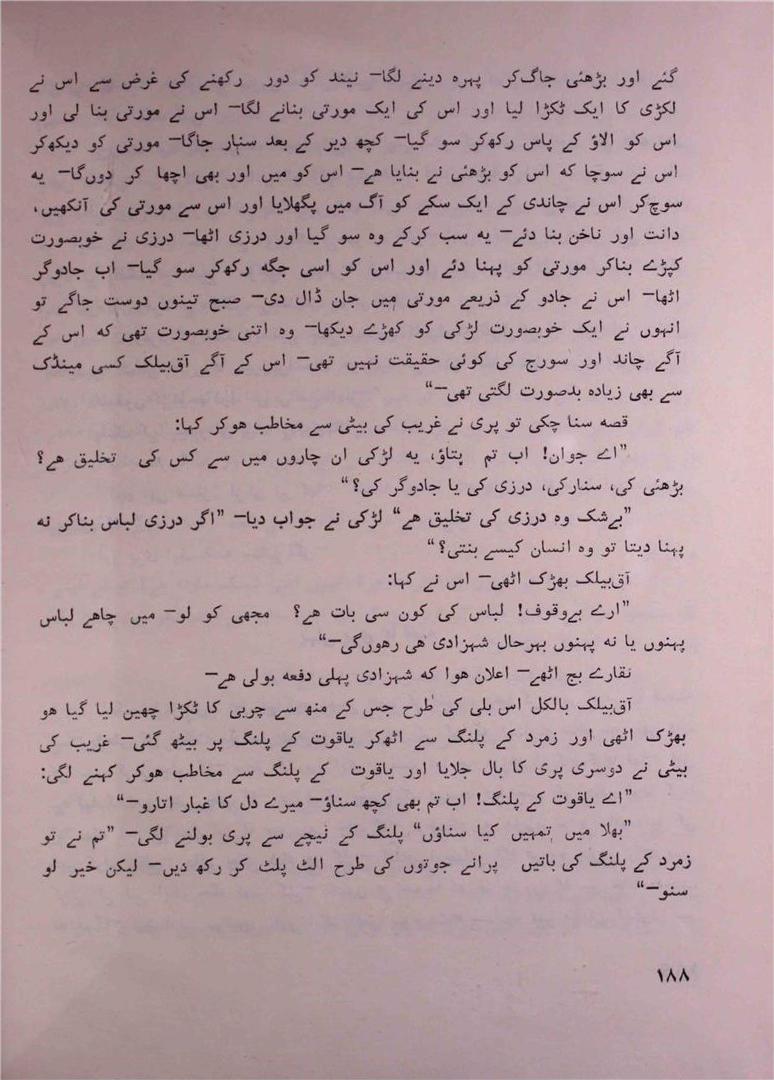 گئے اور بڑھئی جاگ کر پہرہ دینے لگا— نیند کو دور رکھنے کی غرض سے اس نے
لکڑی کا ایک ٹکڑا لیا اور اس کی ایک مورتی بنانے لگا— اس نے مورتی بنا لی اور
اس کو الاؤ کے پاس رکھکر سو گیا— کچھ دیر کے بعد سنار جاگا— مورتی کو دیکھکر
اس نے سوچا کہ اس کو بڑھئی نے بنایا ھے— اس کو میں اور بھی اچھا کر دوں گا— یہ
سوچ کر اس نے چاندی کے ایک سکے کو آگ میں پگھلایا اور اس سے مورتی کی آنکھیں،
دانت اور ناخن بنا دئے— یہ سب کرکے وہ سو گیا اور درزی اٹھا— درزی نے خوبصورت
کپڑے بناکر مورتی کو پہنا دئے اور اس کو اسی جگہ رکھکر سو گیا— اب جادوگر
اٹھا— اس نے جادو کے ذریعے مورتی میں جان ڈال دی— صبح تینوں دوست جاگے تو
انہوں نے ایک خوبصورت لڑکی کو کھڑے دیکھا— وہ اتنی خوبصورت تھی کہ اس کے
آگے چاند اور سورج کی کوئی حقیقت نہیں تھی— اس کے آگے آق بیلک کسی مینڈک
سے بھی زیادہ بدصورت لگتی تھی—“
قصہ سنا چکی تو پری نے غریب کی بیٹی سے مخاطب ھوکر کہا:
”اے جوان! اب تم بتاؤ، یہ لڑکی ان چاروں میں سے کس کی تخلیق ھے؟
بڑھئی کی، سنار کی، درزی کی یا جادوگر کی؟“
”بے شک وہ درزی کی تخلیق ھے“ لڑکی نے جواب دیا— ”اگر درزی لباس بناکر نہ
پہنا دیتا تو وہ انسان کیسے بنتی؟“
آق بیلک بھڑک اٹھی— اس نے کہا:
”ارے بے وقوف! لباس کی کون سی بات ھے؟ مجھی کو لو— میں چاھے لباس
پہنوں یا نہ پہنوں بہرحال شہزادی ھی رھوں گی—“
نقارے بج اٹھے— اعلان ھوا کہ شہزادی پہلی دفعہ بولی ھے—
آق بیلک بالکل اس بلی کی طرح جس کے منھ سے چربی کا ٹکڑا چھین لیا گیا ھو
بھڑک اٹھی اور زمرد کے پلنگ سے اٹھکر یاقوت کے پلنگ پر بیٹھ گئی— غریب کی
بیٹی نے دوسری پری کا بال جلایا اور یاقوت کے پلنگ سے مخاطب ھوکر کہنے لگی:
”اے یاقوت کے پلنگ! اب تم بھی کچھ سناؤ— میرے دل کا غبار اتارو—“
”بھلا میں تمہیں کیا سناؤں“ پلنگ کے نیچے سے پری بولنے لگی— ”تم نے تو
زمرد کے پلنگ کی باتیں پرانے جوتوں کی طرح الٹ پلٹ کر رکھ دیں— لیکن خیر لو
سنو—“
۱۸۸